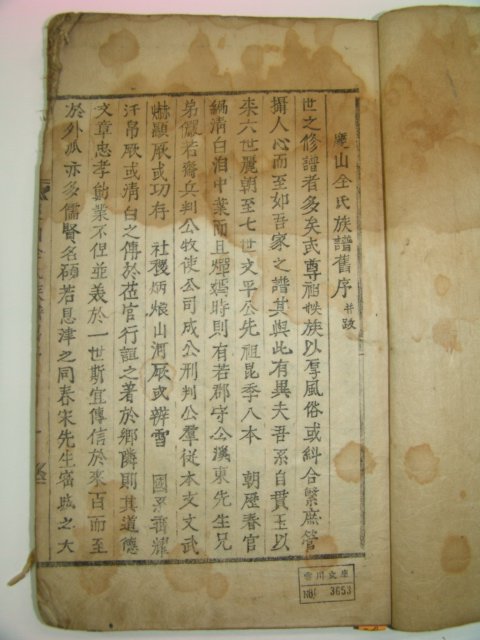 慶山全氏族譜舊序 并跋
世之修譜者多矣或尊祖收族以厚風俗或糾合繁庶管
攝人心而至如吾家之譜其與此有異夫吾系自貫玉以
來六世麗朝至七世文平公先祖昆季八本 朝歷春官
綰清白洎中葉而且燀爀時則有若郡守公溪東先生兄
弟儼若齋兵判公牧使公司成公刑判公羣從本支文武
爀顯厥或功存 社稷炳烺山河厥或辨雪 國系看耀
汗帛厥或清白之傳於莅官行誼之著於鄉隣則其道德
文章忠孝勳業不但並美於一世斯宜傳信於來百而至
於外派亦多儒賢名碩若恩津之同春宋先生密城之大
雪川文庫
No. 3653